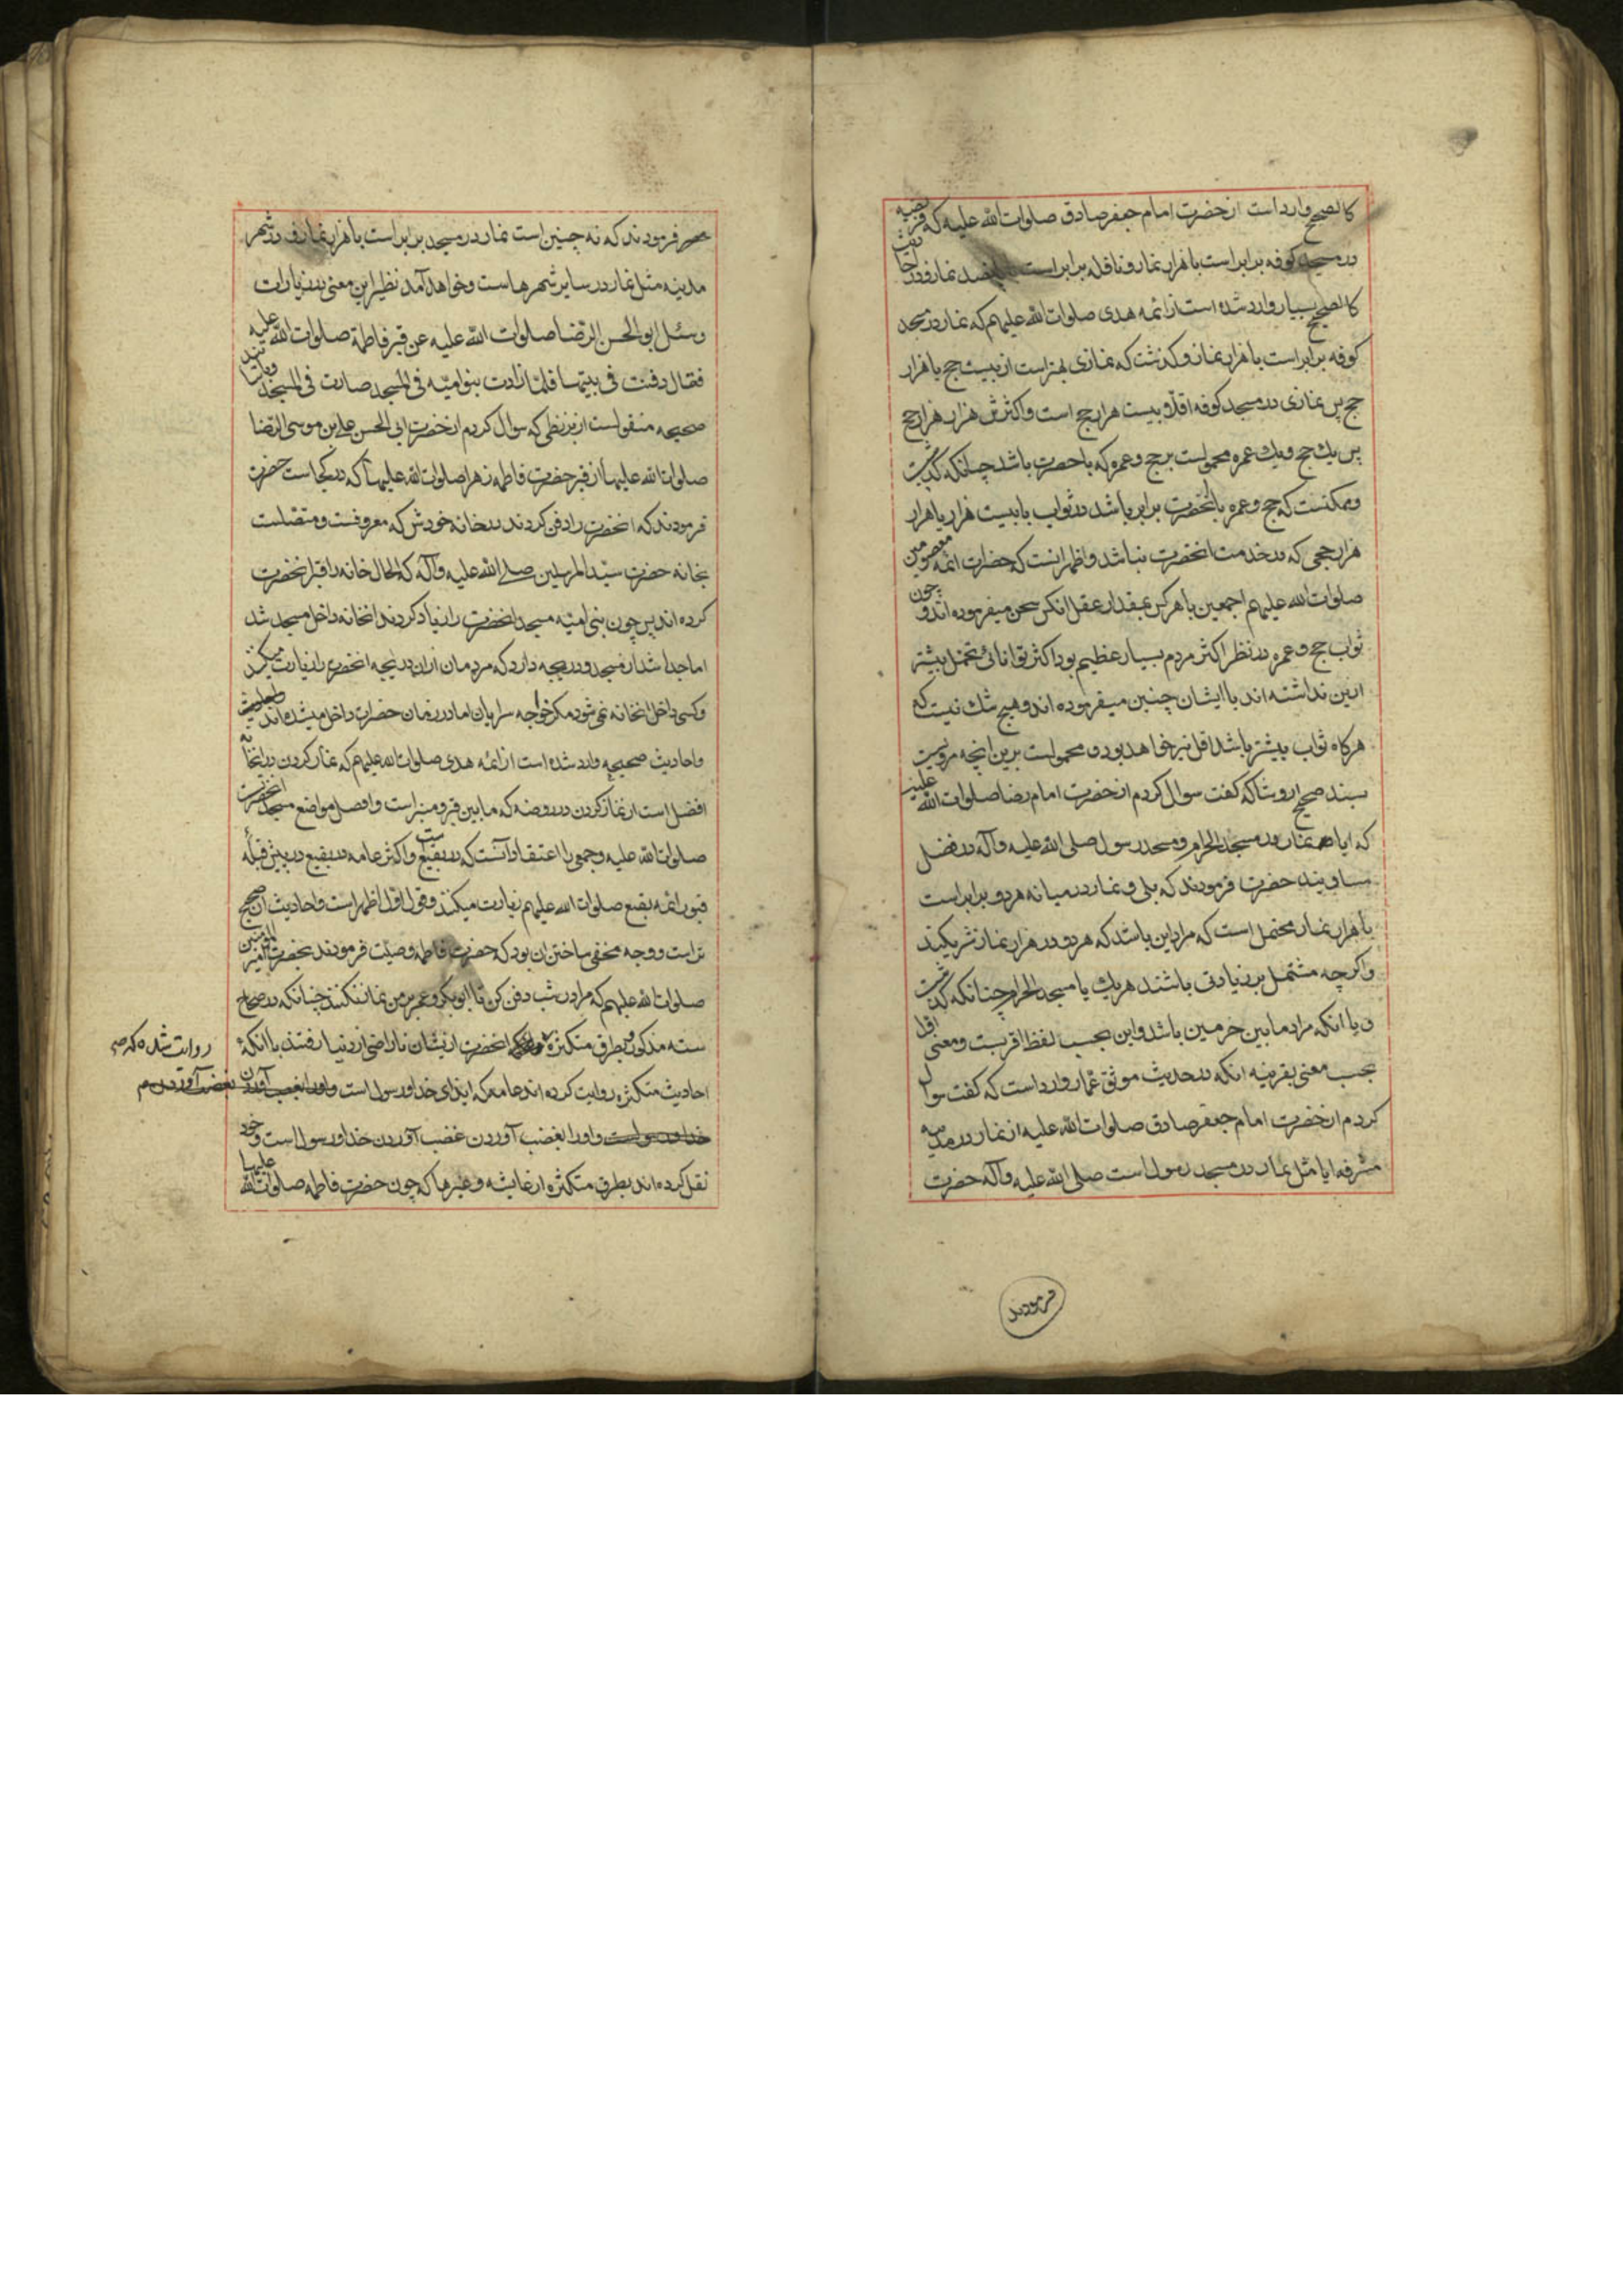 كالصحيح وارد است از حضرت امام جعفر صادق صلوات الله عليه كه فريضه
در مسجد كوفه برابر است با هزار نماز و نافله برابر است با پانصد نماز و در احاديث
كالصحيح بسيار وارد شده است از ائمه هدى صلوات الله عليهم كه نماز در مسجد
كوفه برابر است با هزار نماز و كذشت كه نمازى بهتر است از بيست حج يا هزار
حج پس نمازى در مسجد كوفه اقلا و بيست هزار حج است و اكثرش هزار هزار حج
پس يك حج و يك عمره محمولست بر حج و عمره كه با حضرت باشد چنانكه كذشت
و ممكنست كه حج و عمره با آنحضرت برابر باشد در ثواب با بيست هزار يا هزار
هزار حجى كه در خدمت انحضرت نباشد و اظهر انست كه حضرات ائمه معصومين
صلوات الله عليهم اجمعين با هر كس بمقدار عقل انكس سخن ميفرموده اند و چون
ثواب حج و عمره در نظر اكثر مردم بسيار عظيم بود اكثر توانائى تحمل بيشتر
ازين نداشته اند با ايشان چنين ميفرموده اند و هيچ شك نيست كه
هركاه ثواب بيشتر باشد اقل نيز خواهد بود و محمولست برين آنچه مرويست
بسند صحيح از وشا كه كفت سوال كردم از حضرت امام رضا صلوات الله عليه
كه ايا نماز در مسجد الحرام و مسجد رسول صلى الله عليه و آله در فضل
مساويند حضرت فرمودند كه بلى و نماز در ميانه هر دو برابر است
با هزار نماز محتمل است كه مراد اين باشد كه هر دو در هزار نماز شريكند
و اكرچه مشتمل بر زيادتى باشند هر يك يا مسجد الحرام چنانكه كذشت
و يا انكه مراد ما بين حرمين باشد و اين بحسب لفظ اقربست و معنى اول
بحسب معنى بقرينه انكه در حديث موثق عمار وارد است كه كفت سوال
كردم از حضرت امام جعفر صادق صلوات الله عليه از نماز در مدينه
مشرفه ايا مثل نماز در مسجد رسول است صلى الله عليه و آله حضرت
فرمودند
فرمودند كه نه چنين است نماز در مسجد برابر است با هزار نماز و در شهر
مدينه مثل نماز در ساير شهرها است و خواهد آمد نظير اين معنى در زيارات
و سئل ابو الحسن الرضا صلوات الله عليه عن قبر فاطمة صلوات الله عليه
فقال دفنت فى بيتها فلما زادت بنو اميه فى المسجد صارت فى المسجد و باسانيد
صحيحه منقولست از بزنطى كه سوال كردم از حضرت ابى الحسن على بن موسى الرضا
صلوات الله عليهما از قبر حضرت فاطمه زهرا صلوات الله عليها كه در كجا است حضرت
فرمودند كه انحضرت را دفن كردند در خانه خودش كه معروفست و متصلست
بخانه حضرت سيد المرسلين صلى الله عليه و آله كه الحال خانه را قبر انحضرت
كرده اند پس چون بنى اميه مسجد انحضرت را زياد كردند انخانه داخل مسجد شد
اما جدا شد از مسجد و دريچه دارد كه مردمان از ان دريچه انحضرت را زيارت ميكنند
و كسى داخل انخانه نمى شود مكر خواجه سرايان اما در زمان حضرات داخل ميشده اند
و احاديث صحيحه وارد شده است از ائمه هدى صلوات الله عليهم كه نماز كردن در انخانه
افضل است از نماز كردن در روضه كه ما بين قبر و منبر است و افضل مواضع مسجد انحضرت
صلوات الله عليه و جمعى را اعتقاد آنست كه در بقيع است و اكثر عامه در بقيع در پيش قبله
قبور ائمه بقيع صلوات الله عليهم زيارت ميكنند و قول اول اظهر است و احاديث ان صحيح
تر است و وجه مخفى ساختن ان بود كه حضرت فاطمه وصيت فرمودند بحضرت امير المؤمنين
صلوات الله عليهم كه مرا در شب دفن كن تا ابو بكر و عمر بر من نماز نكنند چنانكه در صحاح
سته مذكور و بطرق متكثره روايت شده كه انحضرت ازيشان ناراضى از دنيا رفتند با انكه
احاديث متكثره روايت كرده اند عامه كه ايذاى خدا و رسول است
و او را بغضب آوردن غضب آوردن خدا و رسول است و خود
نقل كرده اند بطرق متكثره از عايشه و غيرها كه چون حضرت فاطمه صلوات الله عليها